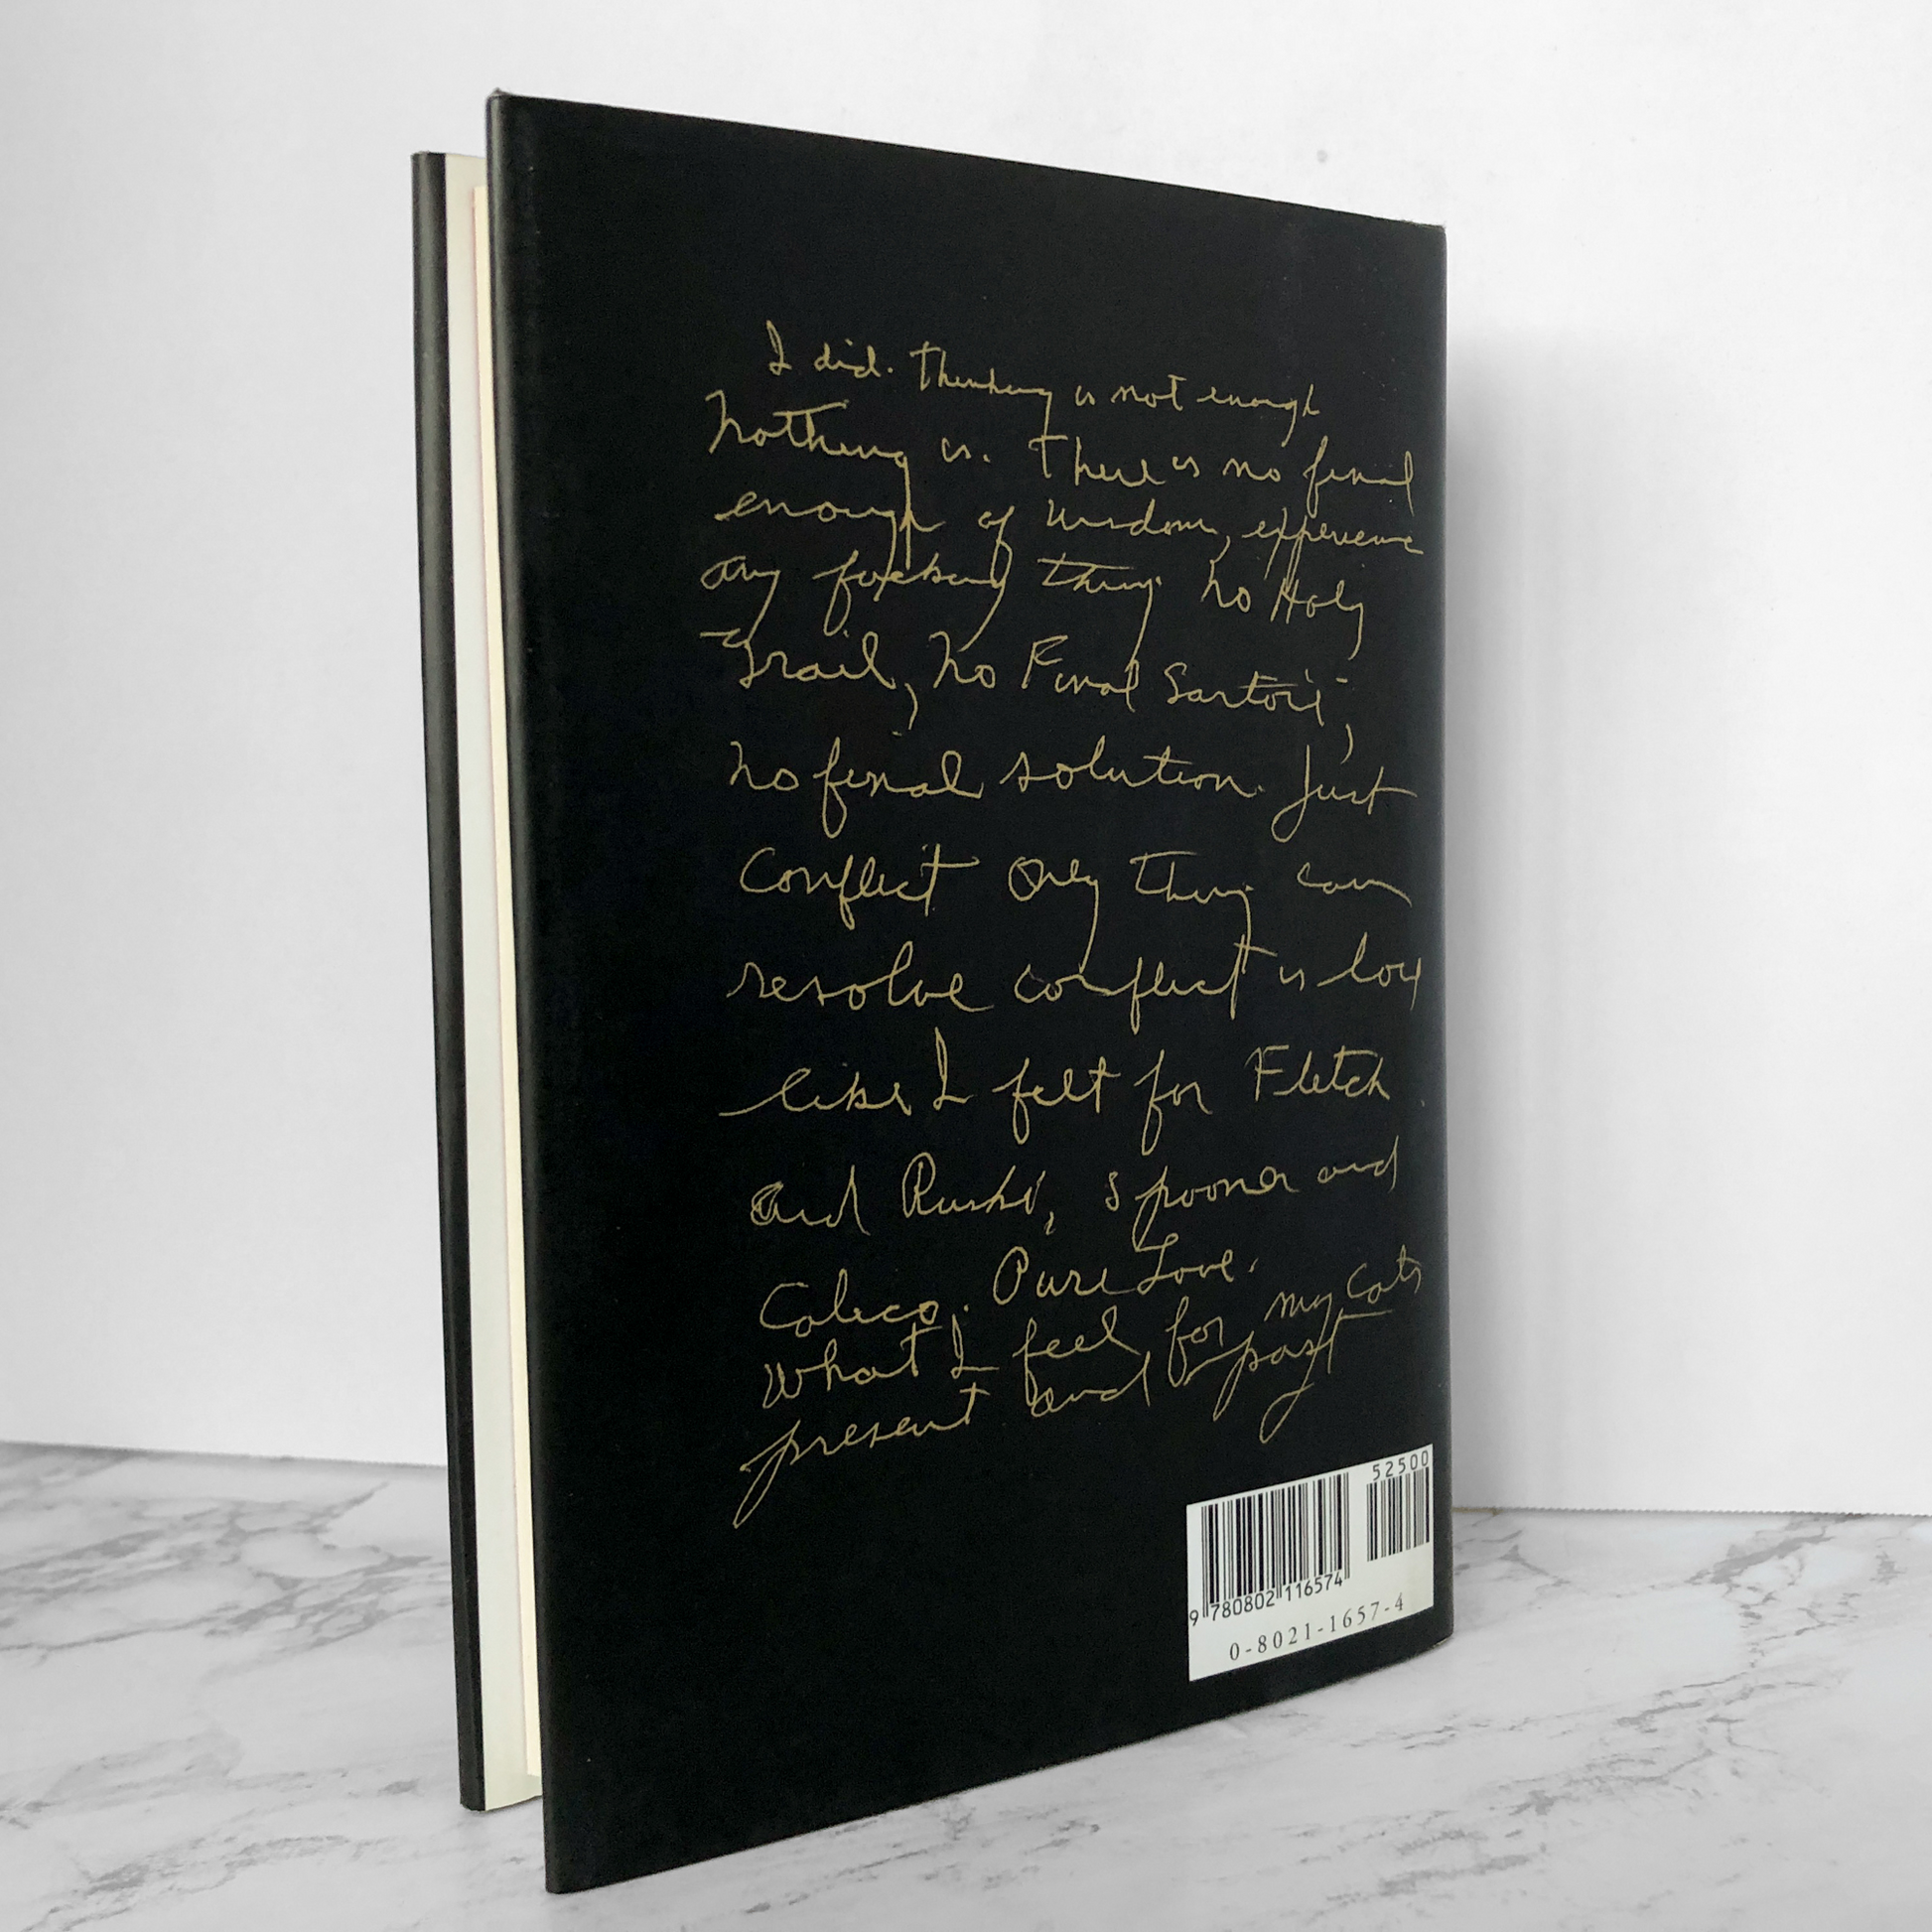 I did. Thinking is not enough
Nothing is. There is no final
enough of wisdom, experience
any fucking thing. No Holy
Grail, No Final Sartori,
no final solution. Just
Conflict Only thing can
resolve conflict is love
like I felt for Fletch
and Ruski, Spooner and
Calico. Pure Love.
What I feel for my Cats
present and past
52500
9 780802 116574
0-8021-1657-4